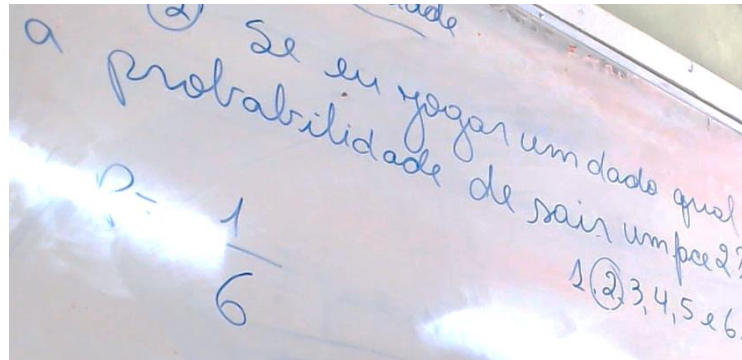 2) Se eu jogar um dado qual
a probabilidade de sair um face 2?
1, 2, 3, 4, 5 e 6.
P = 1/6